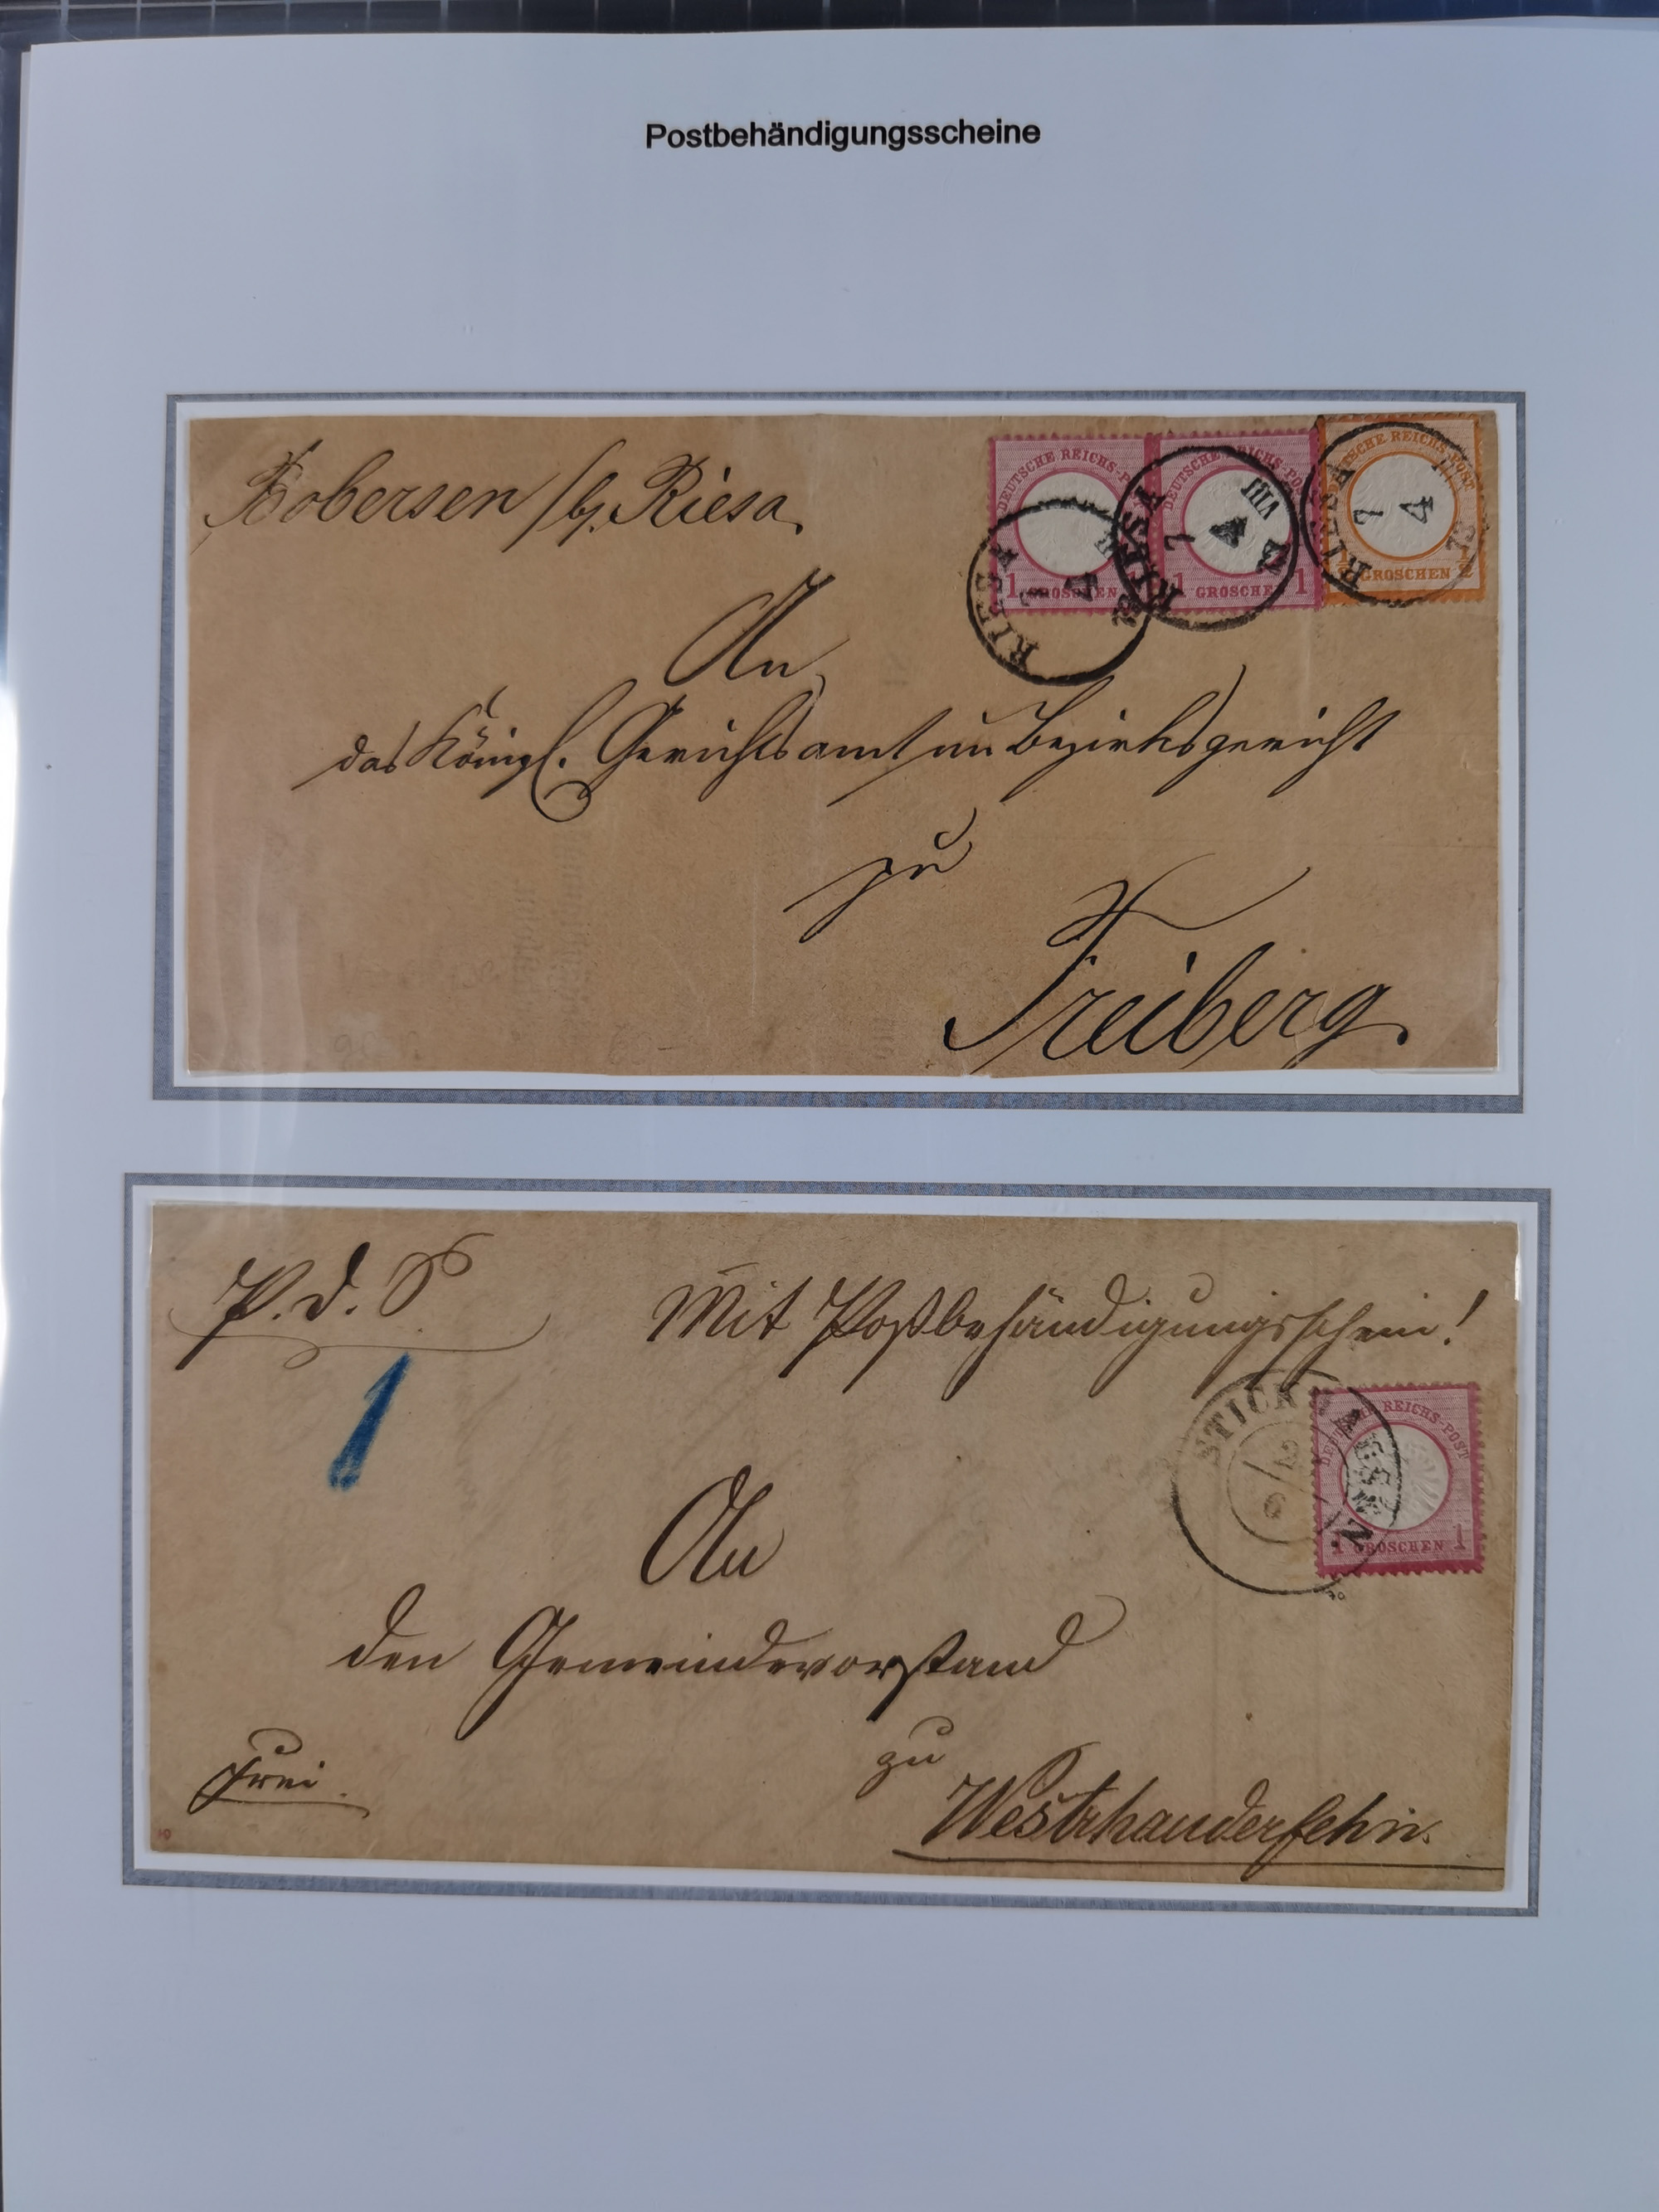 Postbehändigungsscheine
Bobersen /b. Riesa.
DEUTSCHE REICHS-POST
1 GROSCHEN 1
DEUTSCHE REICHS-POST
1 GROSCHEN 1
DEUTSCHE REICHS-POST
½ GROSCHEN ½
RIESA
RIESA 7 4 VIII
RIESA 7 4 73
An
das Königl. Gerichtsamt im Bezirksgericht
zu
Freiberg.
P. d. S
Mit Postbehändigungsschein!
1
DEUTSCHE REICHS-POST
1 GROSCHEN 1
An
den Gemeindevorstand
Frei.
zu
Westrhauderfehn.